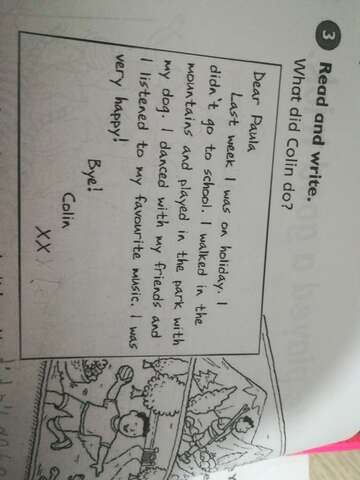 3 Read and write.
What did Colin do?
Dear Paula
Last week I was on holiday. I
didn't go to school. I walked in the
mountains and played in the park with
my dog. I danced with my friends and
I listened to my favourite music. I was
very happy!
Bye!
Colin
XX